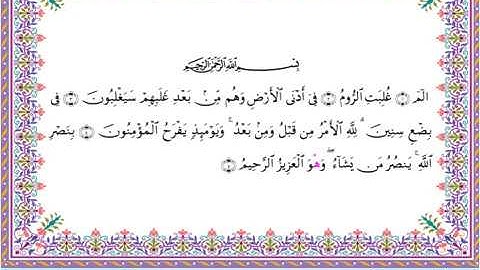 بِسْمِ اللَّهِ الرَّحْمَٰنِ الرَّحِيمِ
الٓمٓ ۝ غُلِبَتِ ٱلرُّومُ ۝ فِىٓ أَدْنَى ٱلْأَرْضِ وَهُم مِّنۢ بَعْدِ غَلَبِهِمْ سَيَغْلِبُونَ ۝ فِى
بِضْعِ سِنِينَ ۗ لِلَّهِ ٱلْأَمْرُ مِن قَبْلُ وَمِنۢ بَعْدُ ۚ وَيَوْمَئِذٍ يَفْرَحُ ٱلْمُؤْمِنُونَ ۝ بِنَصْرِ
ٱللَّهِ ۚ يَنصُرُ مَن يَشَآءُ ۖ وَهُوَ ٱلْعَزِيزُ ٱلرَّحِيمُ ۝